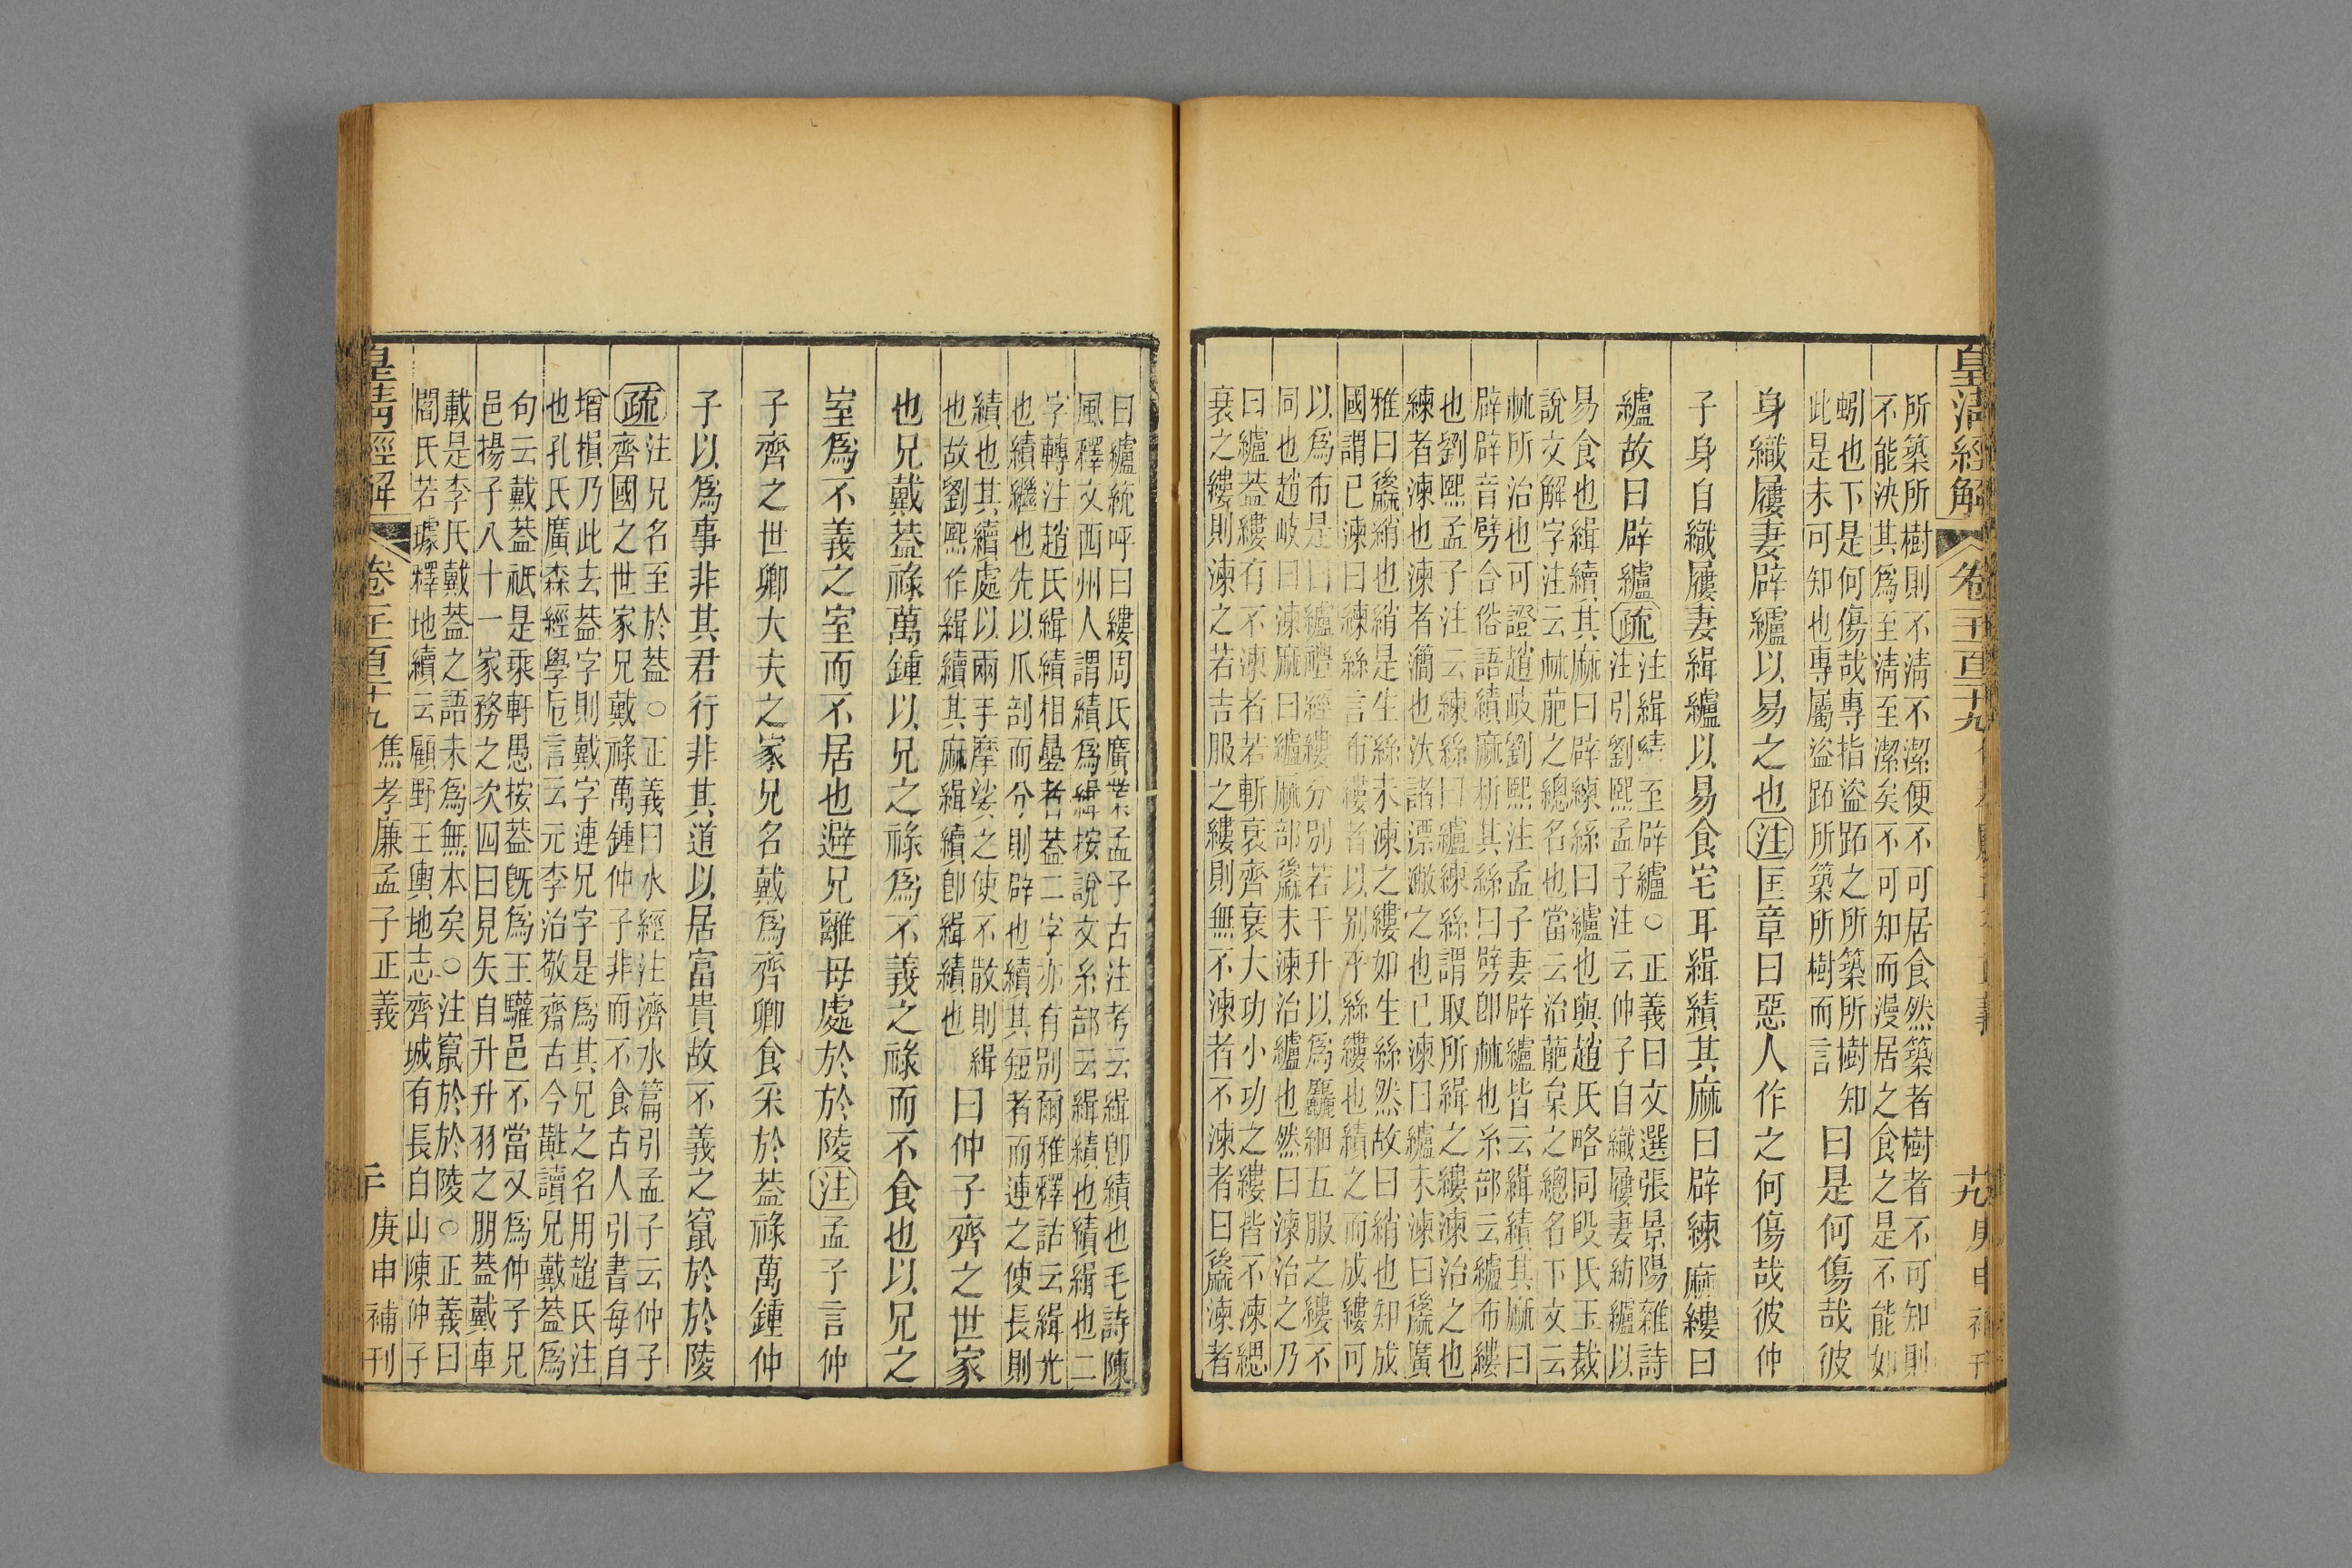 皇清經解
卷一千百十九
十九
庚申補刊
所築所樹則不淸不潔便不可居食然築者樹者不可知則
不能決其爲至淸至潔矣不可知而漫居之食之是不能如
蚓也下是何傷哉專指盜跖之所築所樹知
此是未可知也專屬盜跖所築所樹而言
曰是何傷哉彼
身織屨妻辟纑以易之也注匡章曰惡人作之何傷哉彼仲
子身自織屨妻緝纑以易食宅耳緝績其麻曰辟練麻縷曰
纑故曰辟纑疏
注緝績至辟纑○正義曰文選張景陽雜詩
注引劉熙孟子注云仲子自織屨妻紡纑以
易食也緝續其麻曰辟練絲曰纑也與趙氏略同段氏玉裁
說文解字注云𣏟葩之總名也當云治葩枲之總名下文云
𣏟所治也可證趙岐劉熙注孟子妻辟纑皆云緝績其麻曰
辟辟音劈合俗語績麻析其絲曰劈卽𣏟也糸部云纑布縷
也劉熙孟子注云練絲曰纑練絲謂取所緝之縷湅治之也
練者湅也湅者㶕也汏諸漂潎之也已湅曰纑未湅曰𪎭廣
雅曰𪎭綃也綃是生絲未湅之縷如生絲然故曰綃也知成
國謂已湅曰練絲言布縷者以别乎絲縷也績之而成縷可
以爲布是曰纑禮經縷分别若干升以爲麤細五服之縷不
同也趙岐曰湅麻曰纑麻部𪎭未湅治纑也然曰湅治之乃
曰纑葢縷有不湅者若斬衰齊衰大功小功之縷皆不湅緦
衰之縷則湅之若吉服之縷則無不湅者不湅者曰𪎭湅者
曰纑統呼曰縷周氏廣業孟子古注考云緝卽績也毛詩陳
風釋文西州人謂績爲緝按說文糸部云緝績也績緝也二
字轉注趙氏緝績相疊者葢二字亦有别爾雅釋詁云緝光
也績繼也先以爪剖而分則辟也續其短者而連之使長則
績也其續處以兩手摩娑之使不散則緝
也故劉熙作緝續其麻緝續卽緝績也
曰仲子齊之世家
也兄戴葢祿萬鍾以兄之祿爲不義之祿而不食也以兄之
室爲不義之室而不居也避兄離母處於於陵注孟子言仲
子齊之世卿大夫之家兄名戴爲齊卿食采於葢祿萬鍾仲
子以爲事非其君行非其道以居富貴故不義之竄於於陵
疏
注兄名至於葢○正義曰水經注濟水篇引孟子云仲子
齊國之世家兄戴祿萬鍾仲子非而不食古人引書每自
增損乃此去葢字則戴字連兄字是爲其兄之名用趙氏注
也孔氏廣森經學卮言云元李治敬齋古今黈讀兄戴葢爲
句云戴葢祇是乘軒愚按葢旣爲王驩邑不當又爲仲子兄
邑揚子八十一家務之次四曰見矢自升升羽之朋葢戴車
載是李氏戴葢之語未爲無本矣○注竄於於陵○正義曰
閻氏若璩釋地續云顧野王輿地志齊城有長白山陳仲子
皇淸經解
卷一千百十九
焦孝廉孟子正義
二十
庚申補刊